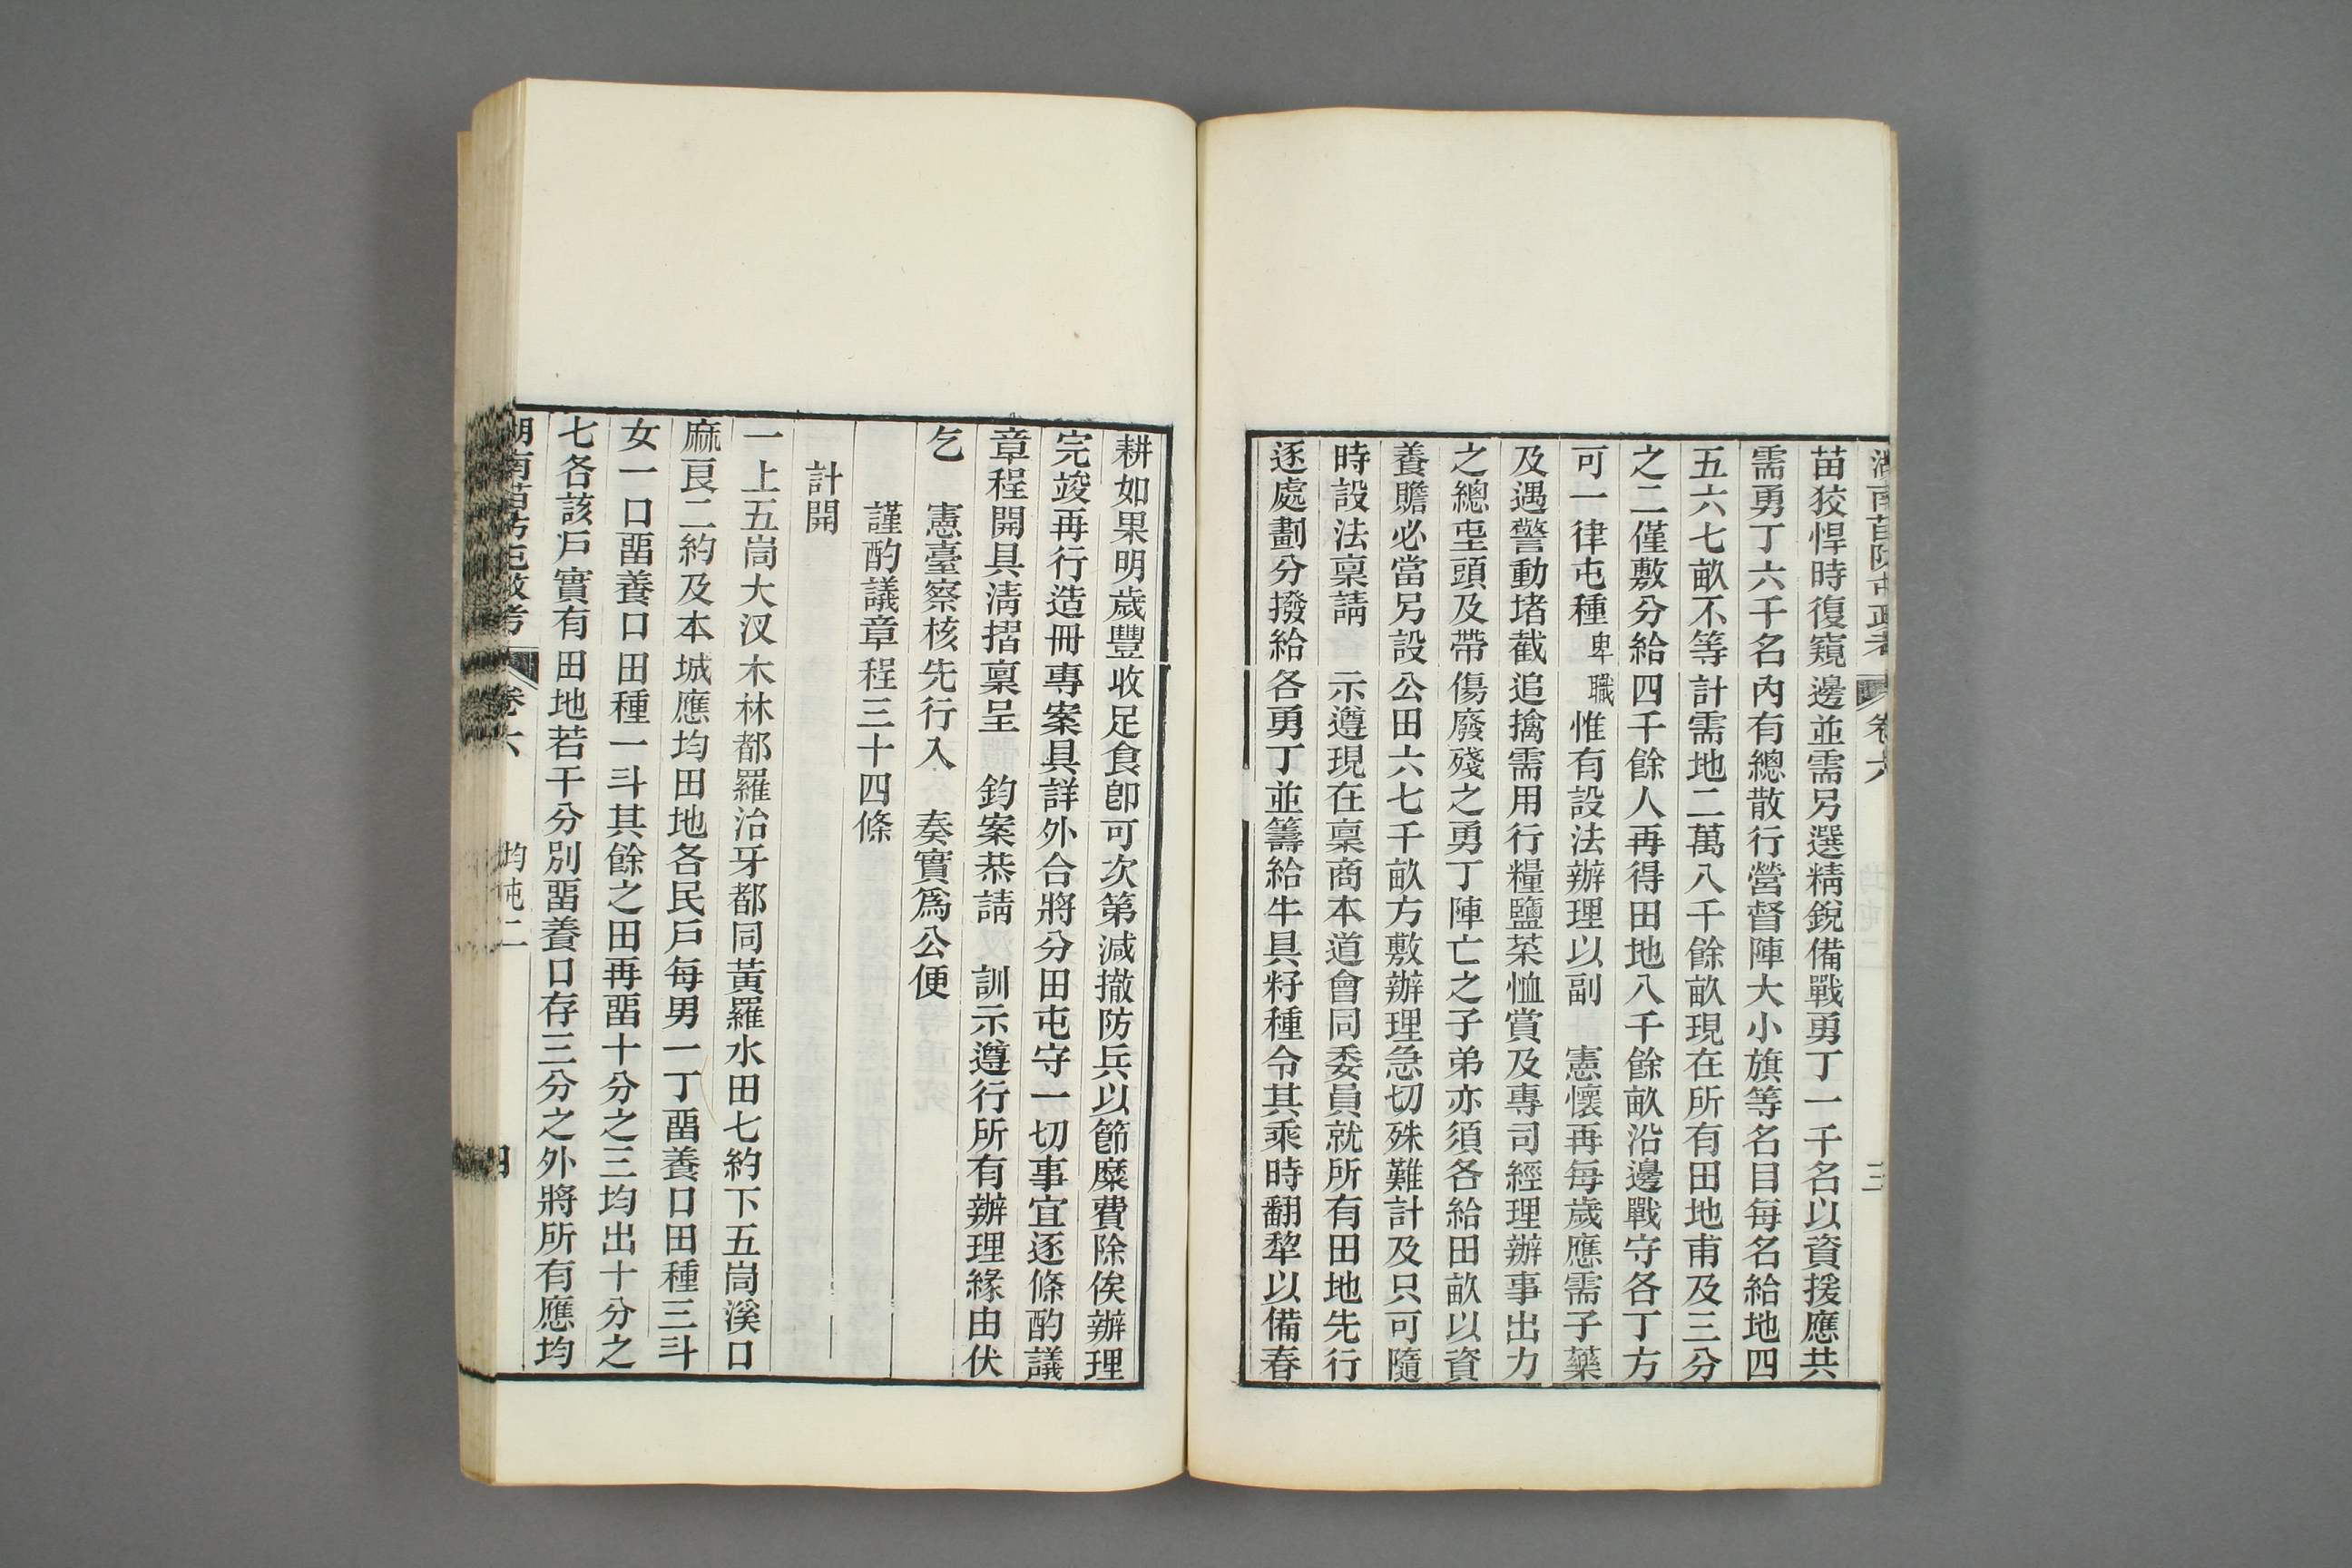 湖南苗防屯政考 卷六 三
苗狡悍時復窺邊並需另選精銳備戰勇丁一千名以資援應共
需勇丁六千名內有總散行營督陣大小旗等名目每名給地四
五六七畝不等計需地二萬八千餘畝現在所有田地甫及三分
之二僅敷分給四千餘人再得田地八千餘畝沿邊戰守各丁方
可一律屯種卑職惟有設法辦理以副 憲懷再每歲應需子藥
及遇警動堵截追擒需用行糧鹽菜恤賞及專司經理辦事出力
之總屯頭及帶傷廢殘之勇丁陣亡之子弟亦須各給田畝以資
養贍必當另設公田六七千畝方敷辦理急切殊難計及只可隨
時設法稟請 示遵現在稟商本道會同委員就所有田地先行
逐處劃分撥給各勇丁並籌給牛具籽種令其乘時翻犂以備春
耕如果明歲豐收足食卽可次第減撤防兵以節糜費除俟辦理
完竣再行造冊專案具詳外合將分田屯守一切事宜逐條酌議
章程開具淸摺稟呈 鈞案恭請 訓示遵行所有辦理緣由伏
乞 憲臺察核先行入 奏實爲公便
謹酌議章程三十四條
計開
一上五峝大汊木林都羅治牙都同黃羅水田七約下五峝溪口
麻良二約及本城應均田地各民戶每男一丁畱養口田種三斗
女一口畱養口田種一斗其餘之田再畱十分之三均出十分之
七各該戶實有田地若干分別畱養口存三分之外將所有應均
湖南苗防屯政考 卷六 均屯二 四